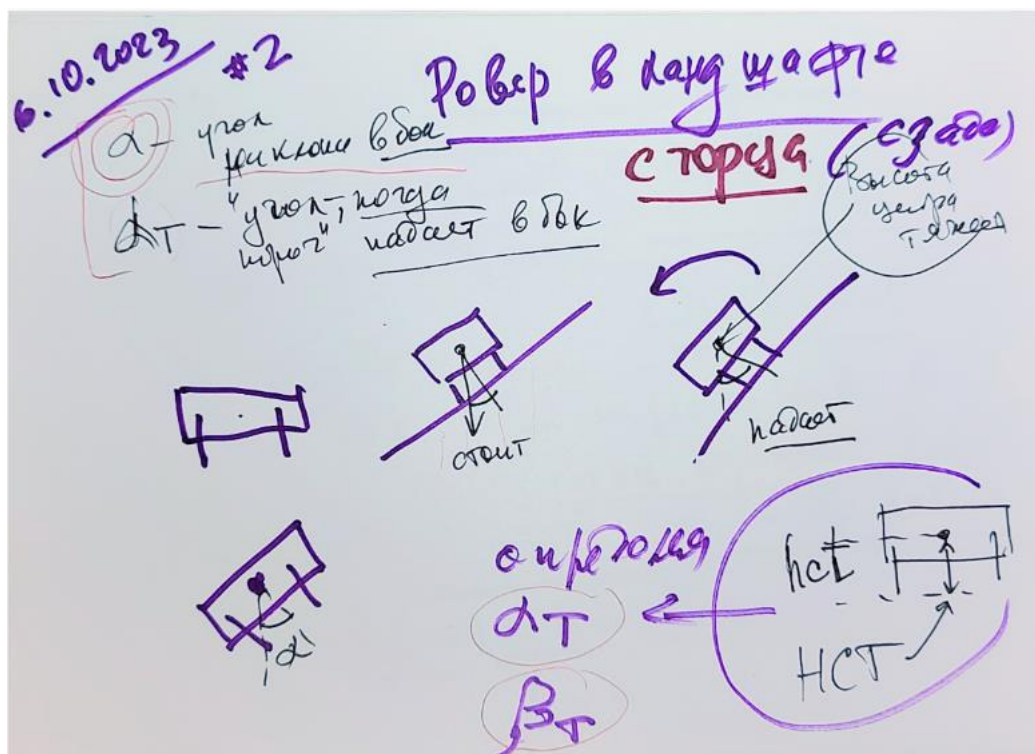 6.10.2023
#2
Ровер в ландшафте
с торца
(сзади)
α - угол
наклона в бок
αT - "угол-, когда
порог" падает в бок
Высота
центра
тяжест
стоит
падает
α
определя
αT
βT
hct
HCT